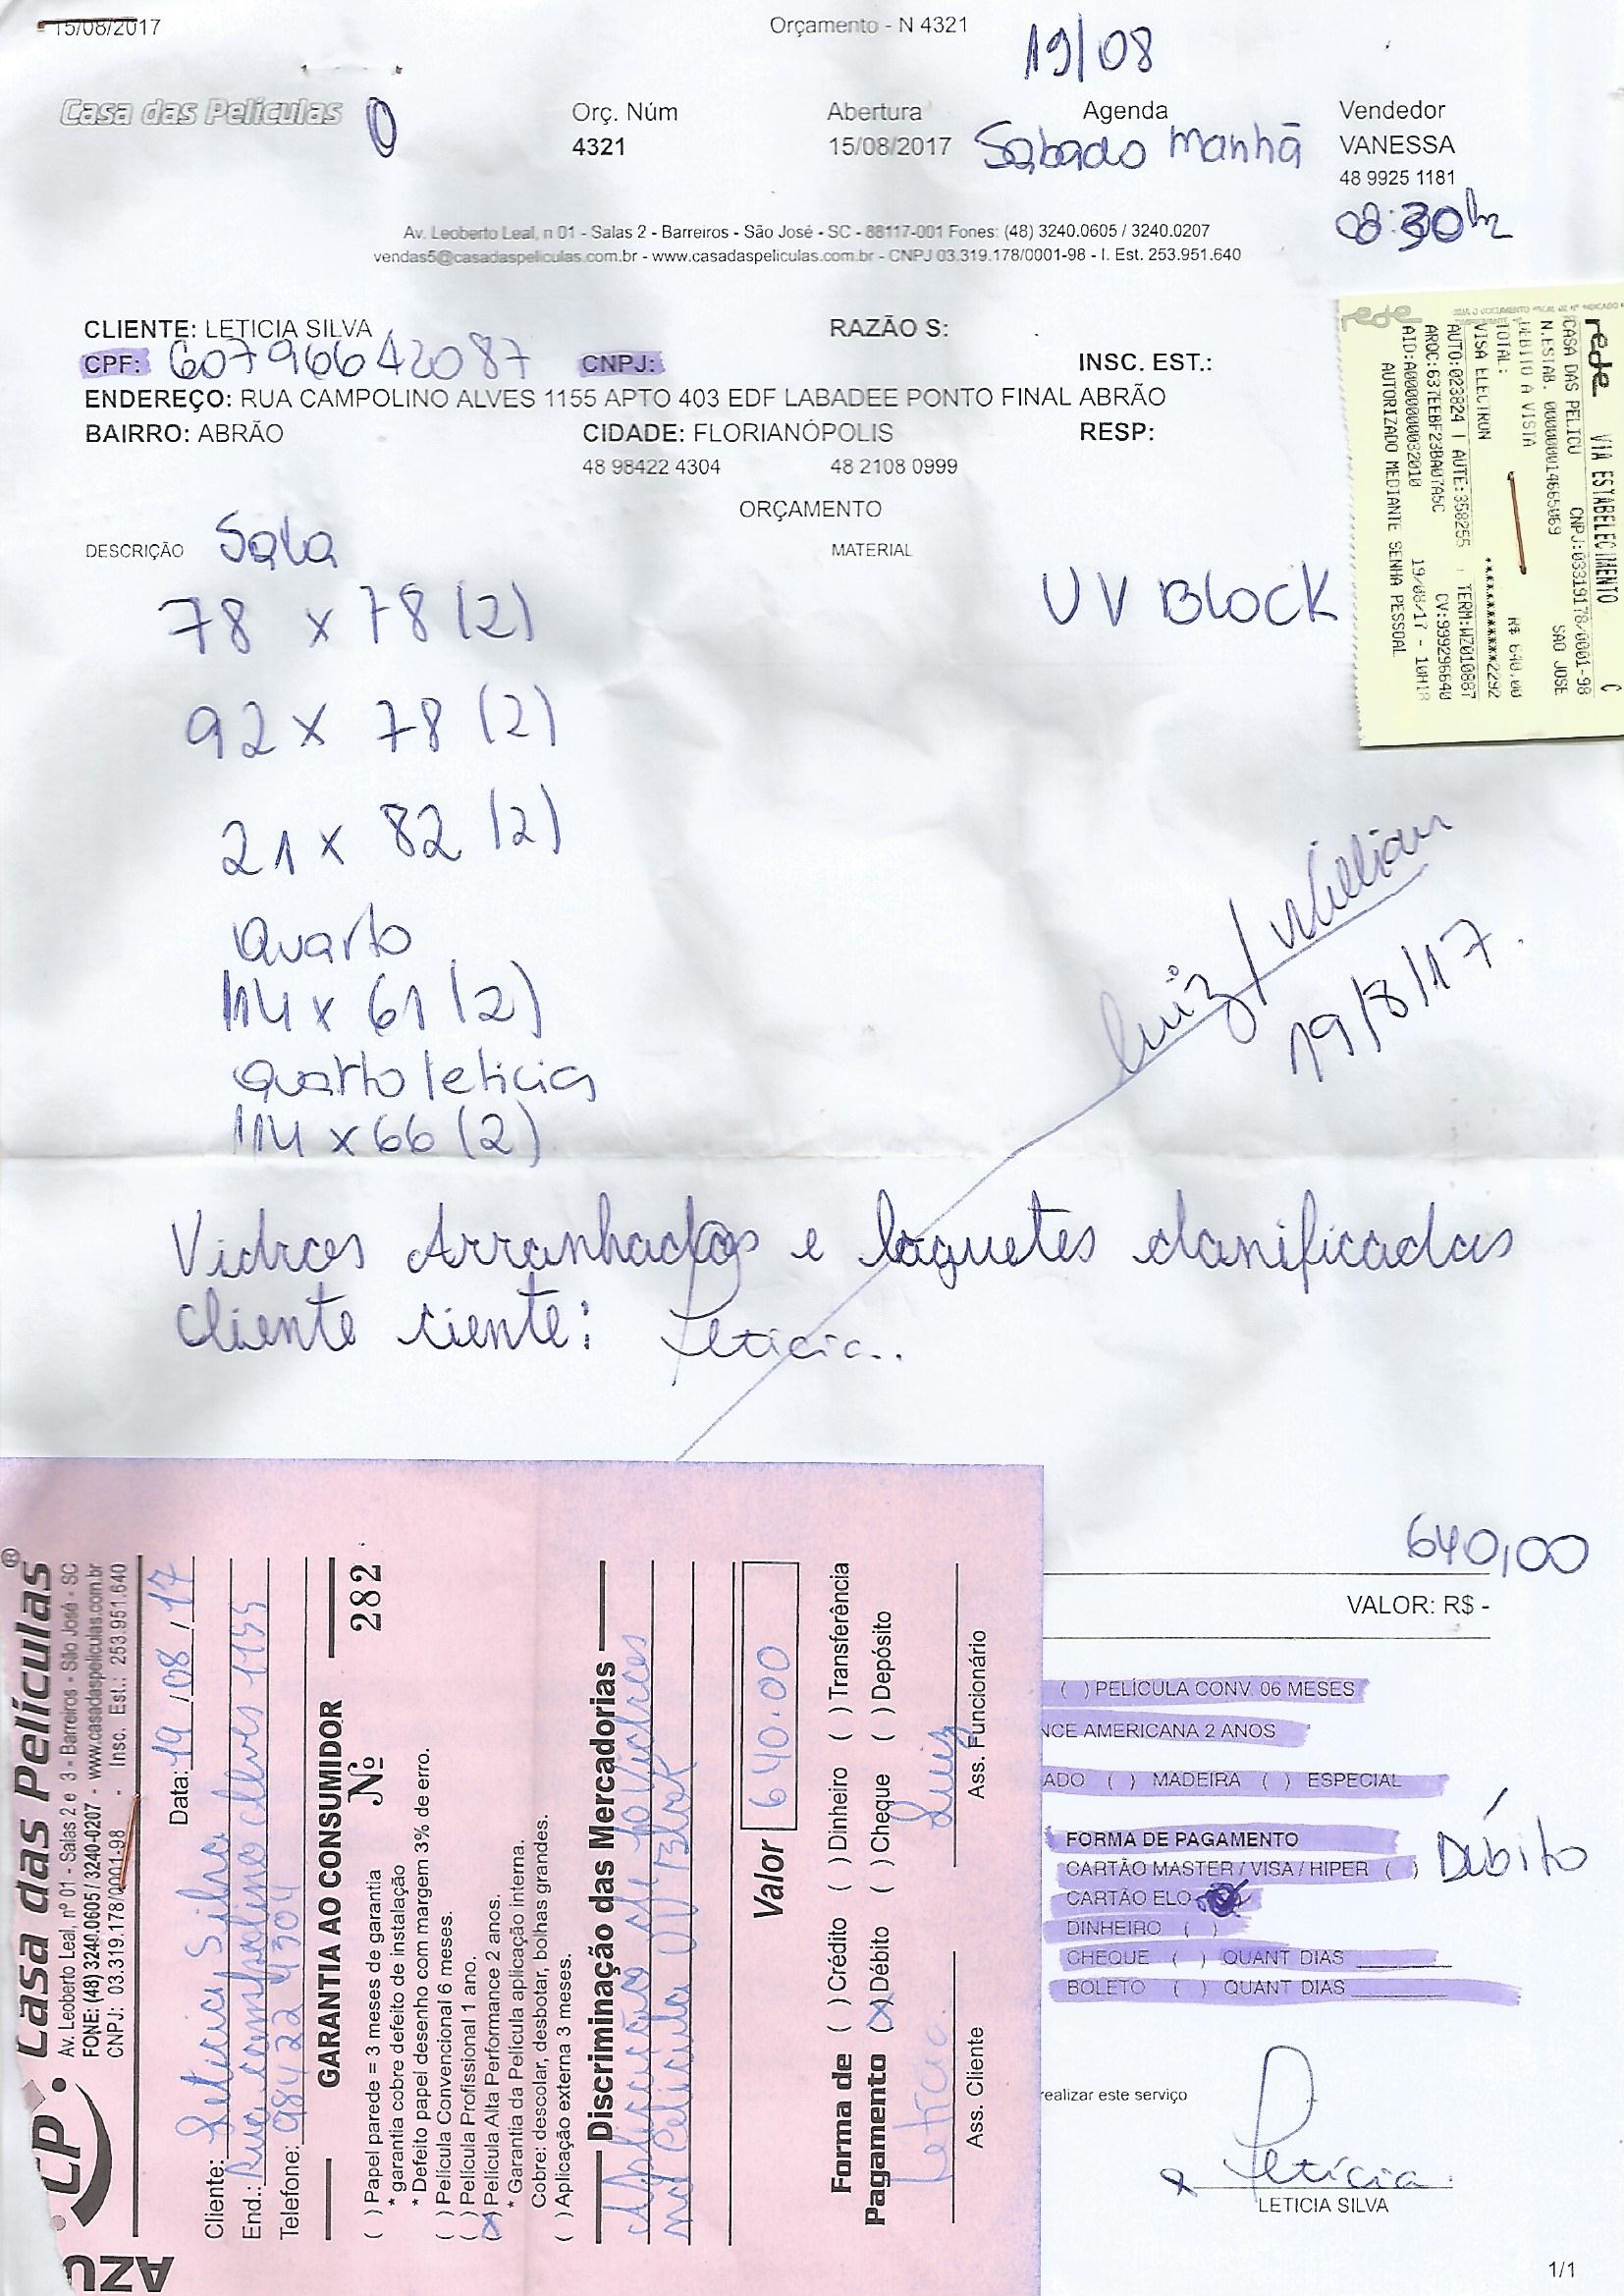 15/08/2017
Orçamento - N 4321
19/08
Casa das Películas
0
Orç. Núm
4321
Abertura
15/08/2017
Agenda
Sabado Manhã
Vendedor
VANESSA
48 9925 1181
08:30h
Av. Leoberto Leal, n 01 - Salas 2 - Barreiros - São José - SC - 88117-001 Fones: (48) 3240.0605 / 3240.0207
vendas5@casadaspeliculas.com.br - www.casadaspeliculas.com.br - CNPJ 03.319.178/0001-98 - I. Est. 253.951.640
CLIENTE: LETICIA SILVA
RAZÃO S:
CPF: 60796642087
CNPJ:
INSC. EST.:
ENDEREÇO: RUA CAMPOLINO ALVES 1155 APTO 403 EDF LABADEE PONTO FINAL ABRÃO
BAIRRO: ABRÃO
CIDADE: FLORIANÓPOLIS
RESP:
48 98422 4304
48 2108 0999
ORÇAMENTO
DESCRIÇÃO Sala
MATERIAL
UV BLOCK
78 x 78 (2)
92 x 78 (2)
21 x 82 (2)
Quarto
114 x 61 (2)
Quarto leticia
114 x 66 (2)
luiz/Willian
19/8/17.
Vidros Arranhados e baguetes danificadas
cliente ciente: Leticia..
rede
VIA ESTABELECIMENTO C
rede
CASA DAS PELICU CNPJ:03319178/0001-98
N.ESTAB. 000000014665069 SAO JOSE
DEBITO A VISTA
TOTAL: R$ 640,00
VISA ELECTRON ************2292
AUTO:023824 | AUTE:358255 TERM:WZ010887
ARQC:637EEBF23BA07A5C CV:999296640
AID:A0000000032010 19/08/17 - 10H18
AUTORIZADO MEDIANTE SENHA PESSOAL
640,00
VALOR: R$ -
( ) PELÍCULA CONV. 06 MESES
NCE AMERICANA 2 ANOS
ADO ( ) MADEIRA ( ) ESPECIAL
FORMA DE PAGAMENTO
CARTÃO MASTER / VISA / HIPER ( ) Débito
CARTÃO ELO
DINHEIRO ( )
CHEQUE ( ) QUANT DIAS
BOLETO ( ) QUANT DIAS
realizar este serviço
x Leticia.
LETICIA SILVA
1/1
CP
Casa das Películas®
Av. Leoberto Leal, nº 01 - Salas 2 e 3 - Barreiros - São José - SC
FONE: (48) 3240.0605 / 3240-0207 - www.casadaspeliculas.com.br
CNPJ: 03.319.178/0001-98 - Insc. Est.: 253.951.640
AZU
Data: 19/08/17
Cliente: Leticia Silva
End.: Rua campolino alves 1155
Telefone: 98422 4304
GARANTIA AO CONSUMIDOR
Nº 282
( ) Papel parede = 3 meses de garantia
* garantia cobre defeito de instalação
* Defeito papel desenho com margem 3% de erro.
( ) Película Convencional 6 meses.
( ) Película Profissional 1 ano.
(x) Película Alta Performance 2 anos.
* Garantia da Película aplicação interna.
Cobre: descolar, desbotar, bolhas grandes.
( ) Aplicação externa 3 meses.
Discriminação das Mercadorias
Aplicação de 10 Vidros
na Pelicula UV Block
Valor 640.00
Forma de Pagamento
( ) Crédito ( ) Dinheiro ( ) Transferência
(x) Débito ( ) Cheque ( ) Depósito
Leticia
Luiz
Ass. Cliente
Ass. Funcionário